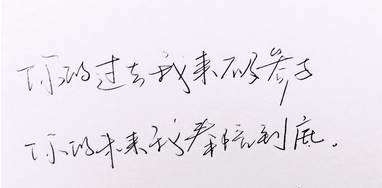 你的过去我来不及参与
你的未来我奉陪到底.